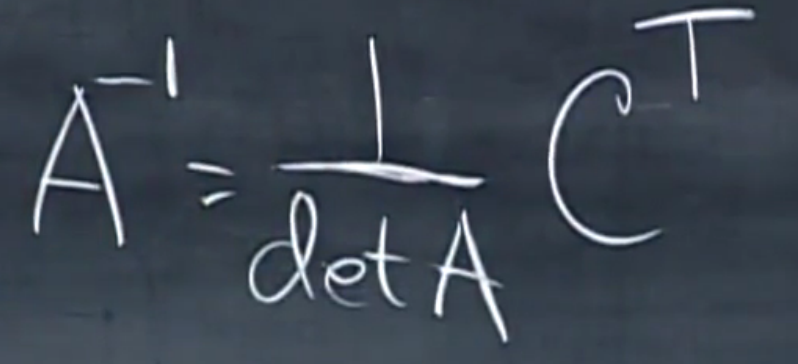 A⁻¹ = 1/det A Cᵀ